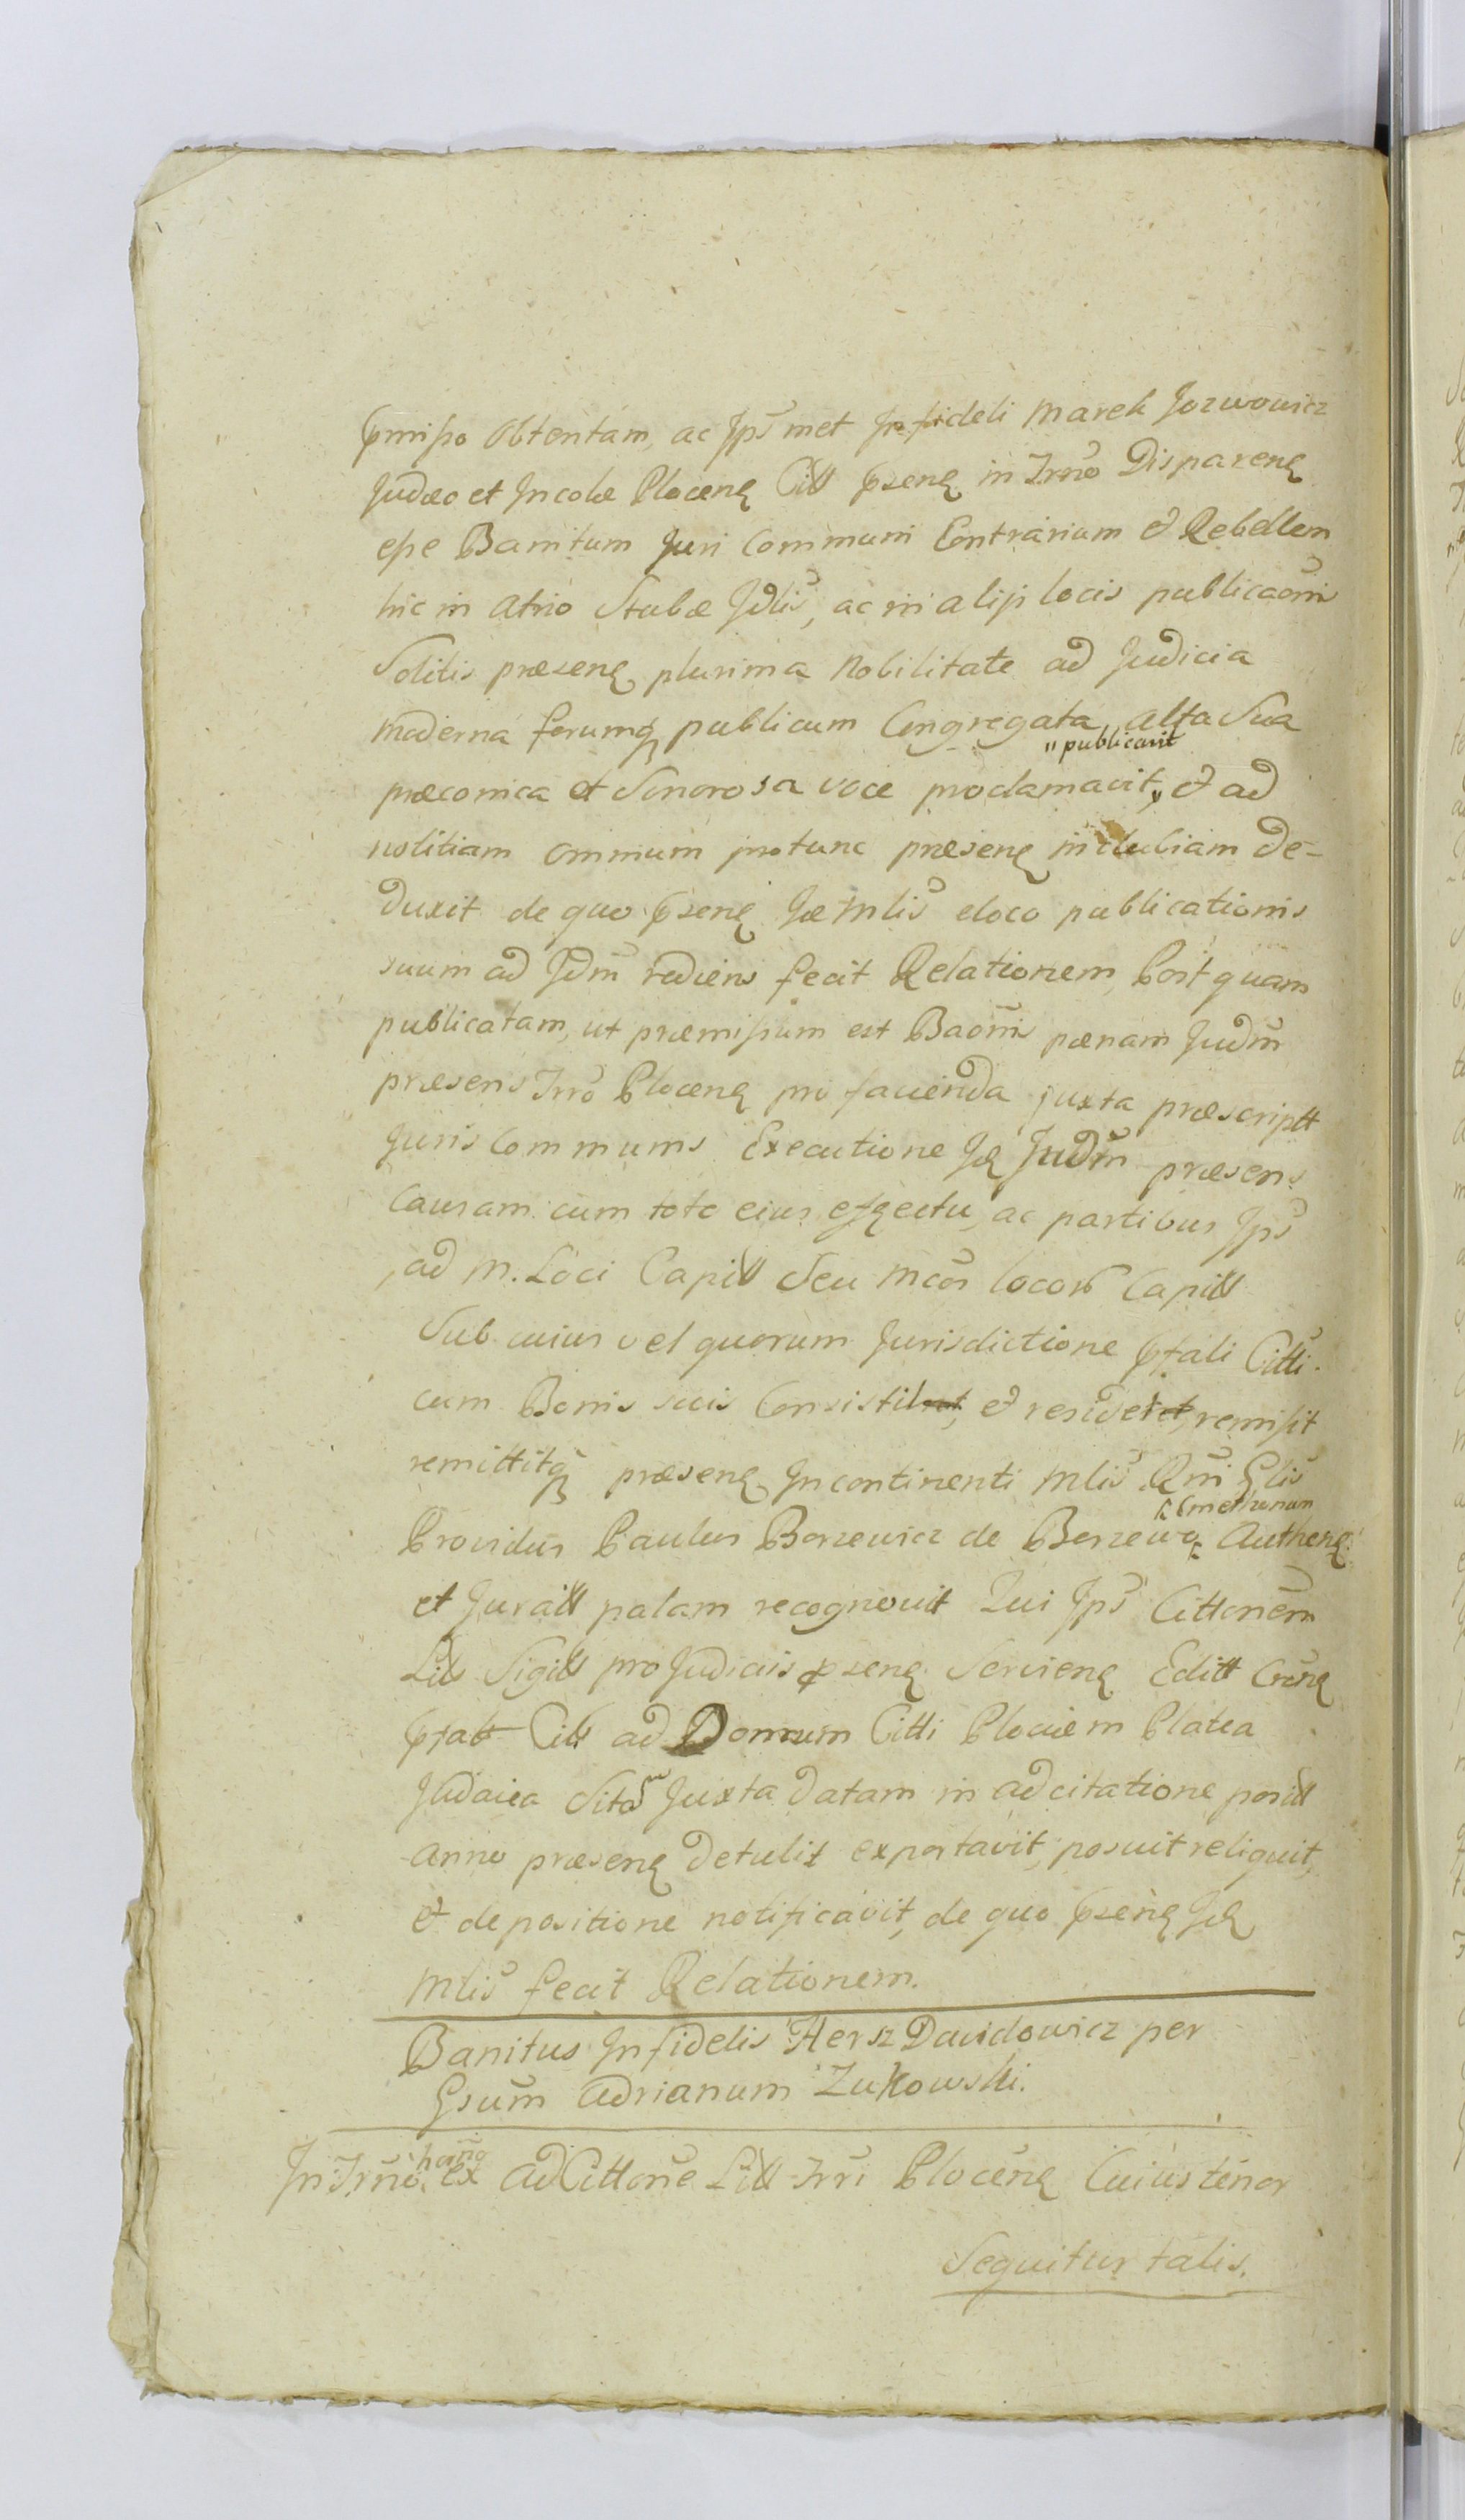 pmisso Obtentam, ac Jps met Infideli Marek Jozwowicz
Judæo et Incolæ Plocenę Citt pzenę in Trno Disparenę
esse Banitum Juri Communi Contrarium et Rebellem
hic in atrio Stubæ Jdlis, ac in alijs locis publicaoni
Solitis præsenę plurima Nobilitate ad Judicia
Moderna forumq publicum Congregata, alta Sua
præconica et Sonorosa voce proclamavit, "publicavit et ad
notitiam omnium protunc præsenę in dubiam de-
duxit de quo pzenę Jæ Mlis eloco publicationis
suum ad Jdm rediens fecit Relationem, Post quam
publicatam, ut præmissum est Baonis pænam Judm
præsens Trro Plocenę pro facienda juxta præscriptt
Juris Communis Executione Ję Judm præsens
Causam cum toto eius effectu, ac partibus Jps
ad M. Loci Capitt Seu Mcos locor Capitt
Sub cuius vel quorum Jurisdictione pfali Citti
cum Bonis suis Consistit, et residet, remisit
remittitq præsenę Incontinenti Mlis Rni Glis
Providus Paulus Borzewicz de Borzewo Cmethonum Authenę
et Juratt palam recognovit Qui Jps Cittonem
Litt Sigitt pro Judiciis pzenę Servienę Editt Cronę
pfatt Citt ad Domum Citti Plociem Platea
Judaica Sitam Juxta datam in adcitatione positt
anno præsenę detulit exportavit, posuit reliquit,
et depositione notificavit, de quo pzenę Ję
Mlis fecit Relationem.
Banitus Infidelis Hersz Davidowicz per
Gsum Adrianum Zukowski.
In Trno hoino ex AdCittone Litt Trri Plocenę Cuius tenor
Sequitur talis.